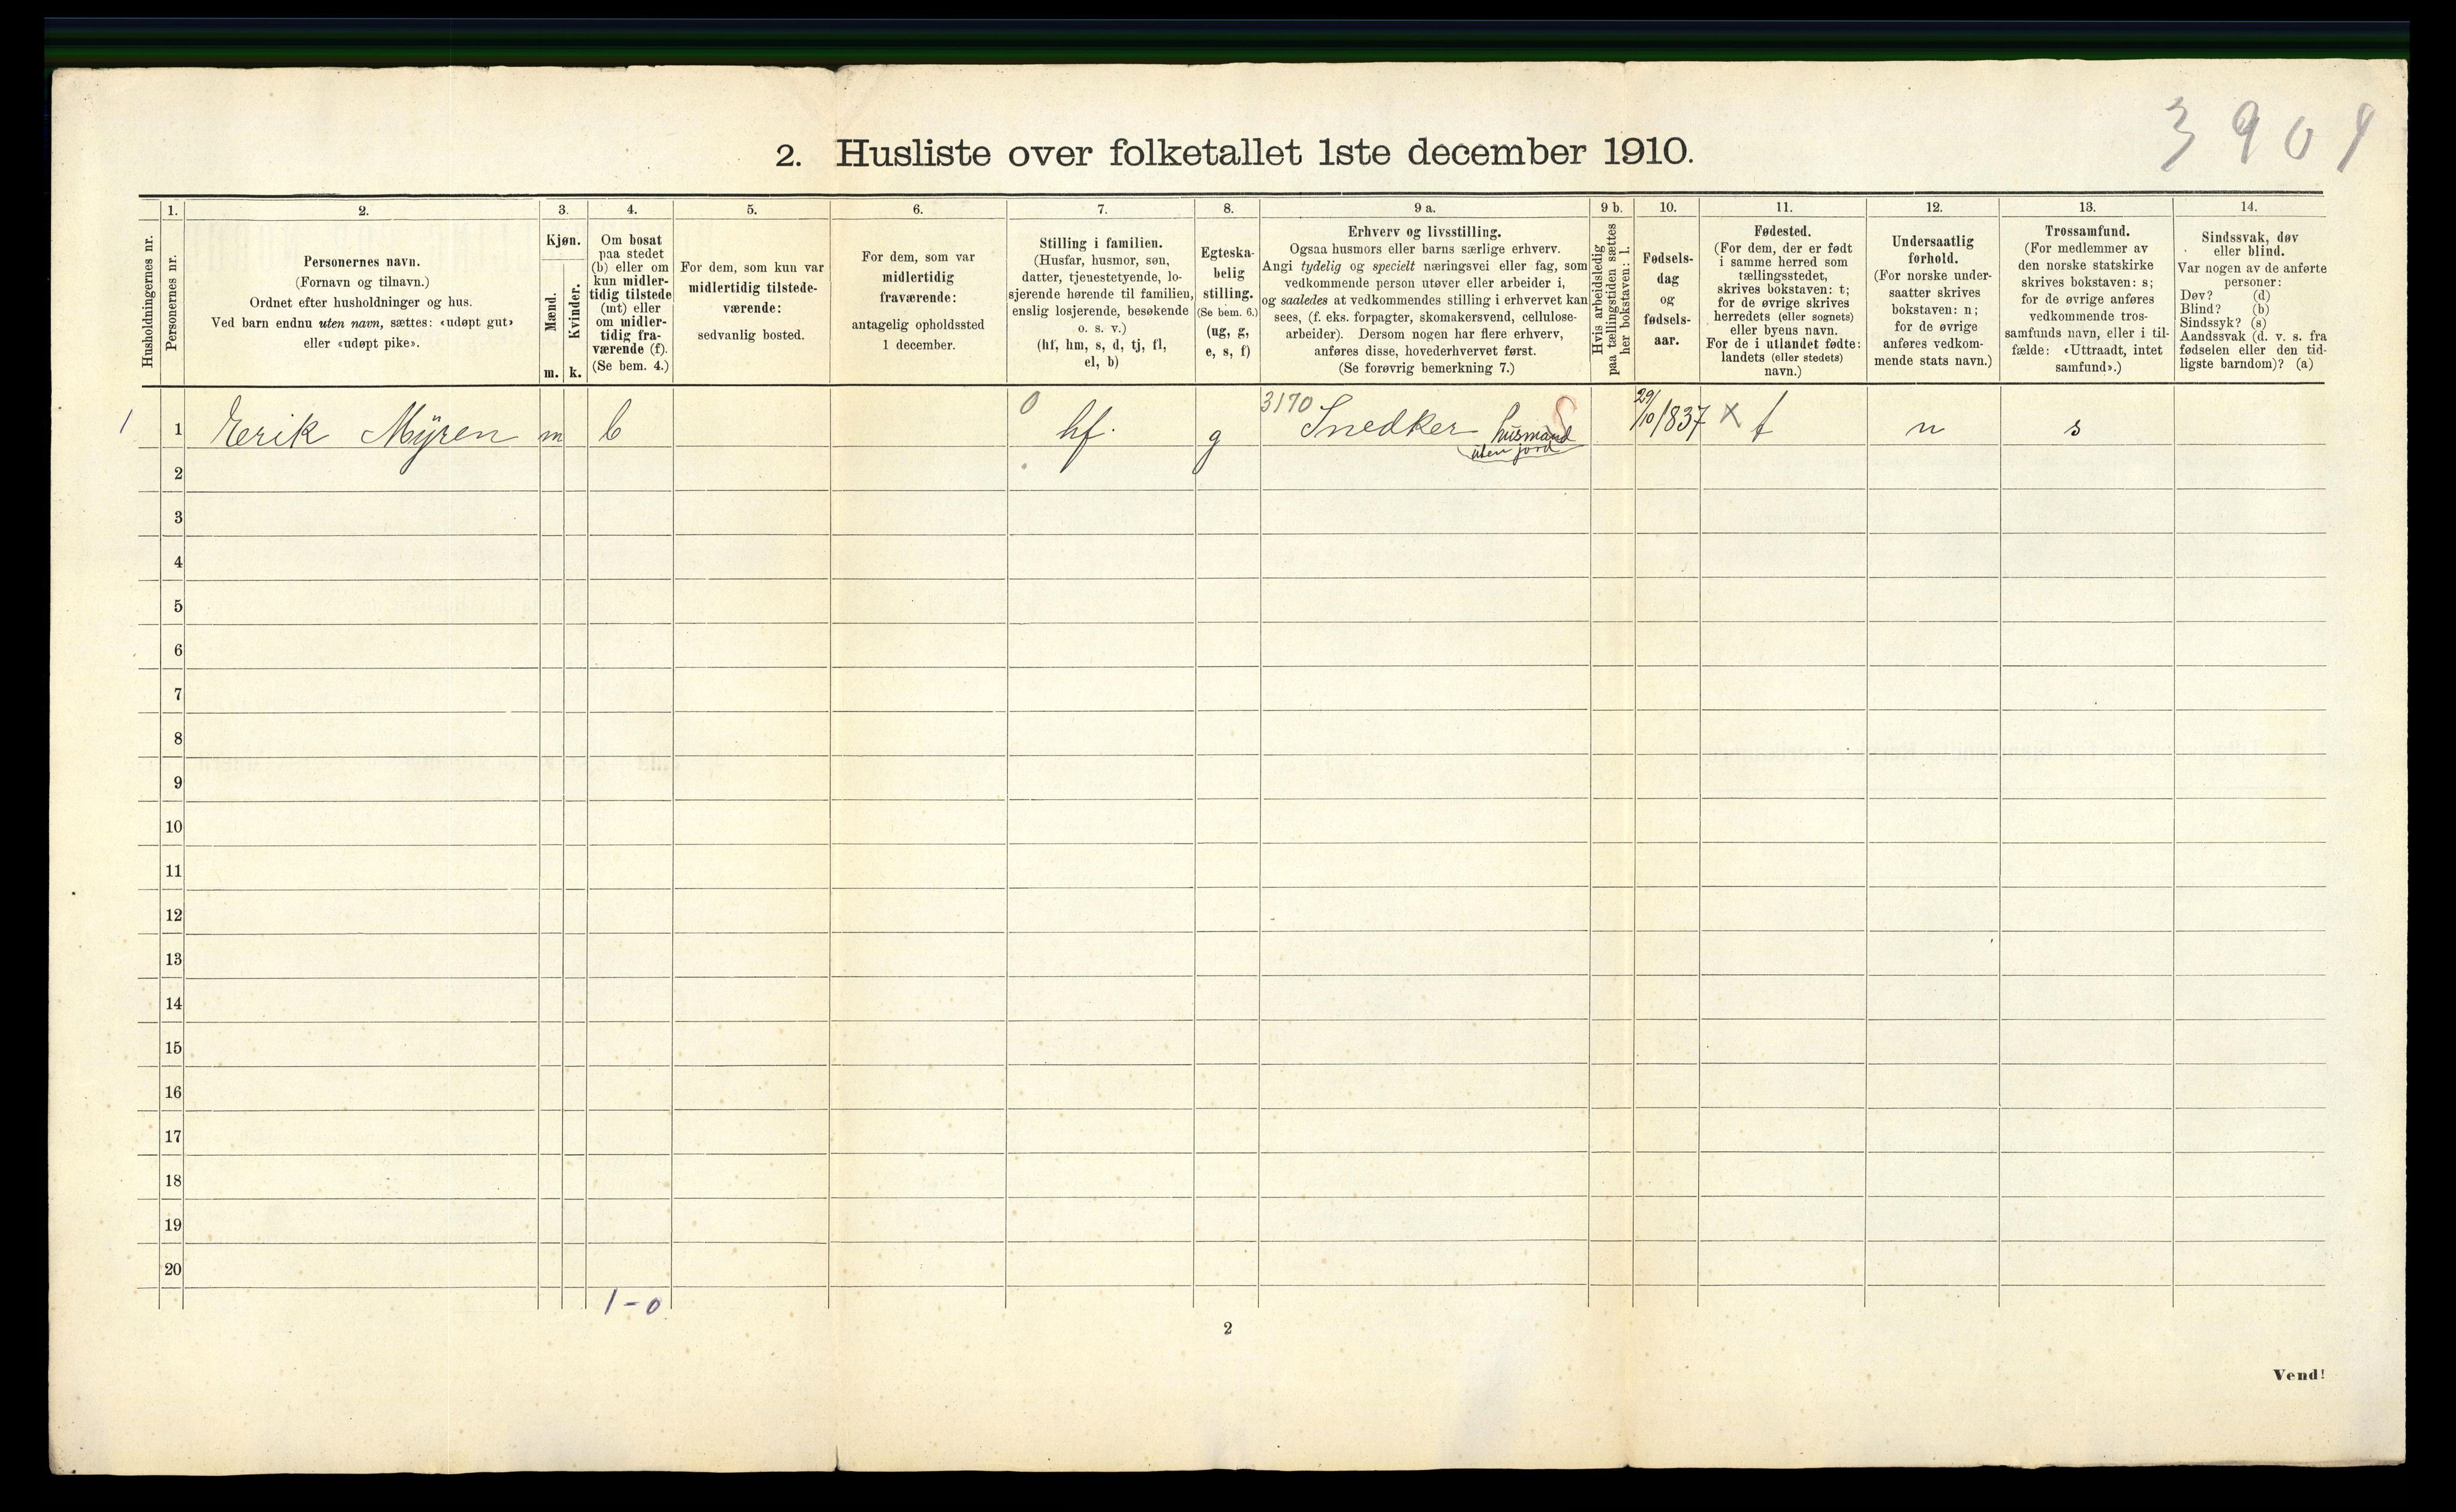 3901
2. Husliste over folketallet 1ste december 1910.
Husholdningernes nr.
1.
Personernes nr.
2.
Personernes navn.
(Fornavn og tilnavn.)
Ordnet efter husholdninger og hus.
Ved barn endnu uten navn, sættes: «udøpt gut»
eller «udøpt pike».
3.
Kjøn.
Mænd.
Kvinder.
m. k.
4.
Om bosat
paa stedet
(b) eller om
kun midler-
tidig tilstede
(mt) eller
om midler-
tidig fra-
værende (f).
(Se bem. 4.)
5.
For dem, som kun var
midlertidig tilstede-
værende:
sedvanlig bosted.
6.
For dem, som var
midlertidig
fraværende:
antagelig opholdssted
1 december.
7.
Stilling i familien.
(Husfar, husmor, søn,
datter, tjenestetyende, lo-
sjerende hørende til familien,
enslig losjerende, besøkende
o. s. v.)
(hf, hm, s, d, tj, fl,
el, b)
8.
Egteska-
belig
stilling.
(Se bem. 6.)
(ug, g,
e, s, f)
9 a.
Erhverv og livsstilling.
Ogsaa husmors eller barns særlige erhverv.
Angi tydelig og specielt næringsvei eller fag, som
vedkommende person utøver eller arbeider i,
og saaledes at vedkommendes stilling i erhvervet kan
sees, (f. eks. forpagter, skomakersvend, cellulose-
arbeider). Dersom nogen har flere erhverv,
anføres disse, hovederhvervet først.
(Se forøvrig bemerkning 7.)
9 b.
Hvis arbeidsledig
paa tællingstiden sættes
her bokstaven: l.
10.
Fødsels-
dag
og
fødsels-
aar.
11.
Fødested.
(For dem, der er født
i samme herred som
tællingsstedet,
skrives bokstaven: t;
for de øvrige skrives
herredets (eller sognets)
eller byens navn.
For de i utlandet fødte:
landets (eller stedets)
navn.)
12.
Undersaatlig
forhold.
(For norske under-
saatter skrives
bokstaven: n;
for de øvrige
anføres vedkom-
mende stats navn.)
13.
Trossamfund.
(For medlemmer av
den norske statskirke
skrives bokstaven: s;
for de øvrige anføres
vedkommende tros-
samfunds navn, eller i til-
fælde: «Uttraadt, intet
samfund».)
14.
Sindssvak, døv
eller blind.
Var nogen av de anførte
personer:
Døv? (d)
Blind? (b)
Sindssyk? (s)
Aandssvak (d. v. s. fra
fødselen eller den tid-
ligste barndom)? (a)
1 1 Erik Myren m b 0 hf. g 3170 Snedker husmand 29/10 1837 x t n s
uten jord
2
3
4
5
6
7
8
9
10
11
12
13
14
15
16
17
18
19
20
1-0
2
Vend!